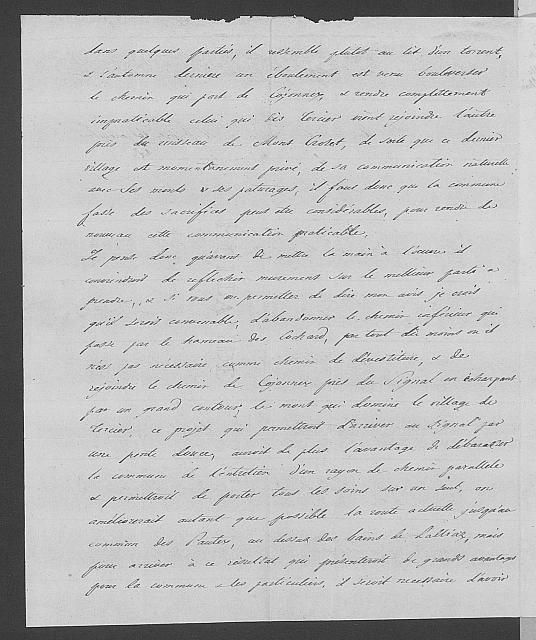 dans quelques parties, il ressemble plutot au lit d'un torrent,
& l'automne dernière un éboulement est venu bouleverser
le chemin qui part de Cojonnex, & rendre complètement
impraticable celui qui dès Cercier vient rejoindre l'autre
près du ruisseau de Mont Croset, de sorte que ce dernier
village est momentanement privé, de sa communication naturelle
avec ses monts & ses paturages, il faut donc que la commune
fasse des sacrifices peut etre considérables, pour rendre de
nouveau cette communication praticable.
Je pense donc qu'avant de mettre la main à l'œuvre il
conviendrait de reflechir murement sur le meilleur parti a
prendre, & si vous me permettez de dire mon avis, je crois
qu'il seroit convenable, d'abandonner le chemin inférieur qui
passe par le hameau des Cochard, par tout du moins ou il
n'est pas nécessaire comme chemin de dévestiture, & de
rejoindre le chemin de Cojonnex près du Signal en
par un grand contour, le mont qui domine le village de
Cercier, ce projet qui permettroit d'arriver au Signal par
une pente douce, auroit de plus l'avantage de débarasser
la commune de l'entretien d'un rayon de chemin parallele
& permettroit de porter tous les soins sur un seul, on
améliorerait autant que possible la route actuelle jusqu'au
commun des Pautex, au dessus des bains de Lalliaz, mais
pour arriver à ce résultat qui présenteroit de grands avantages
pour la commune & les particuliers, il seroit necessaire d'avoir